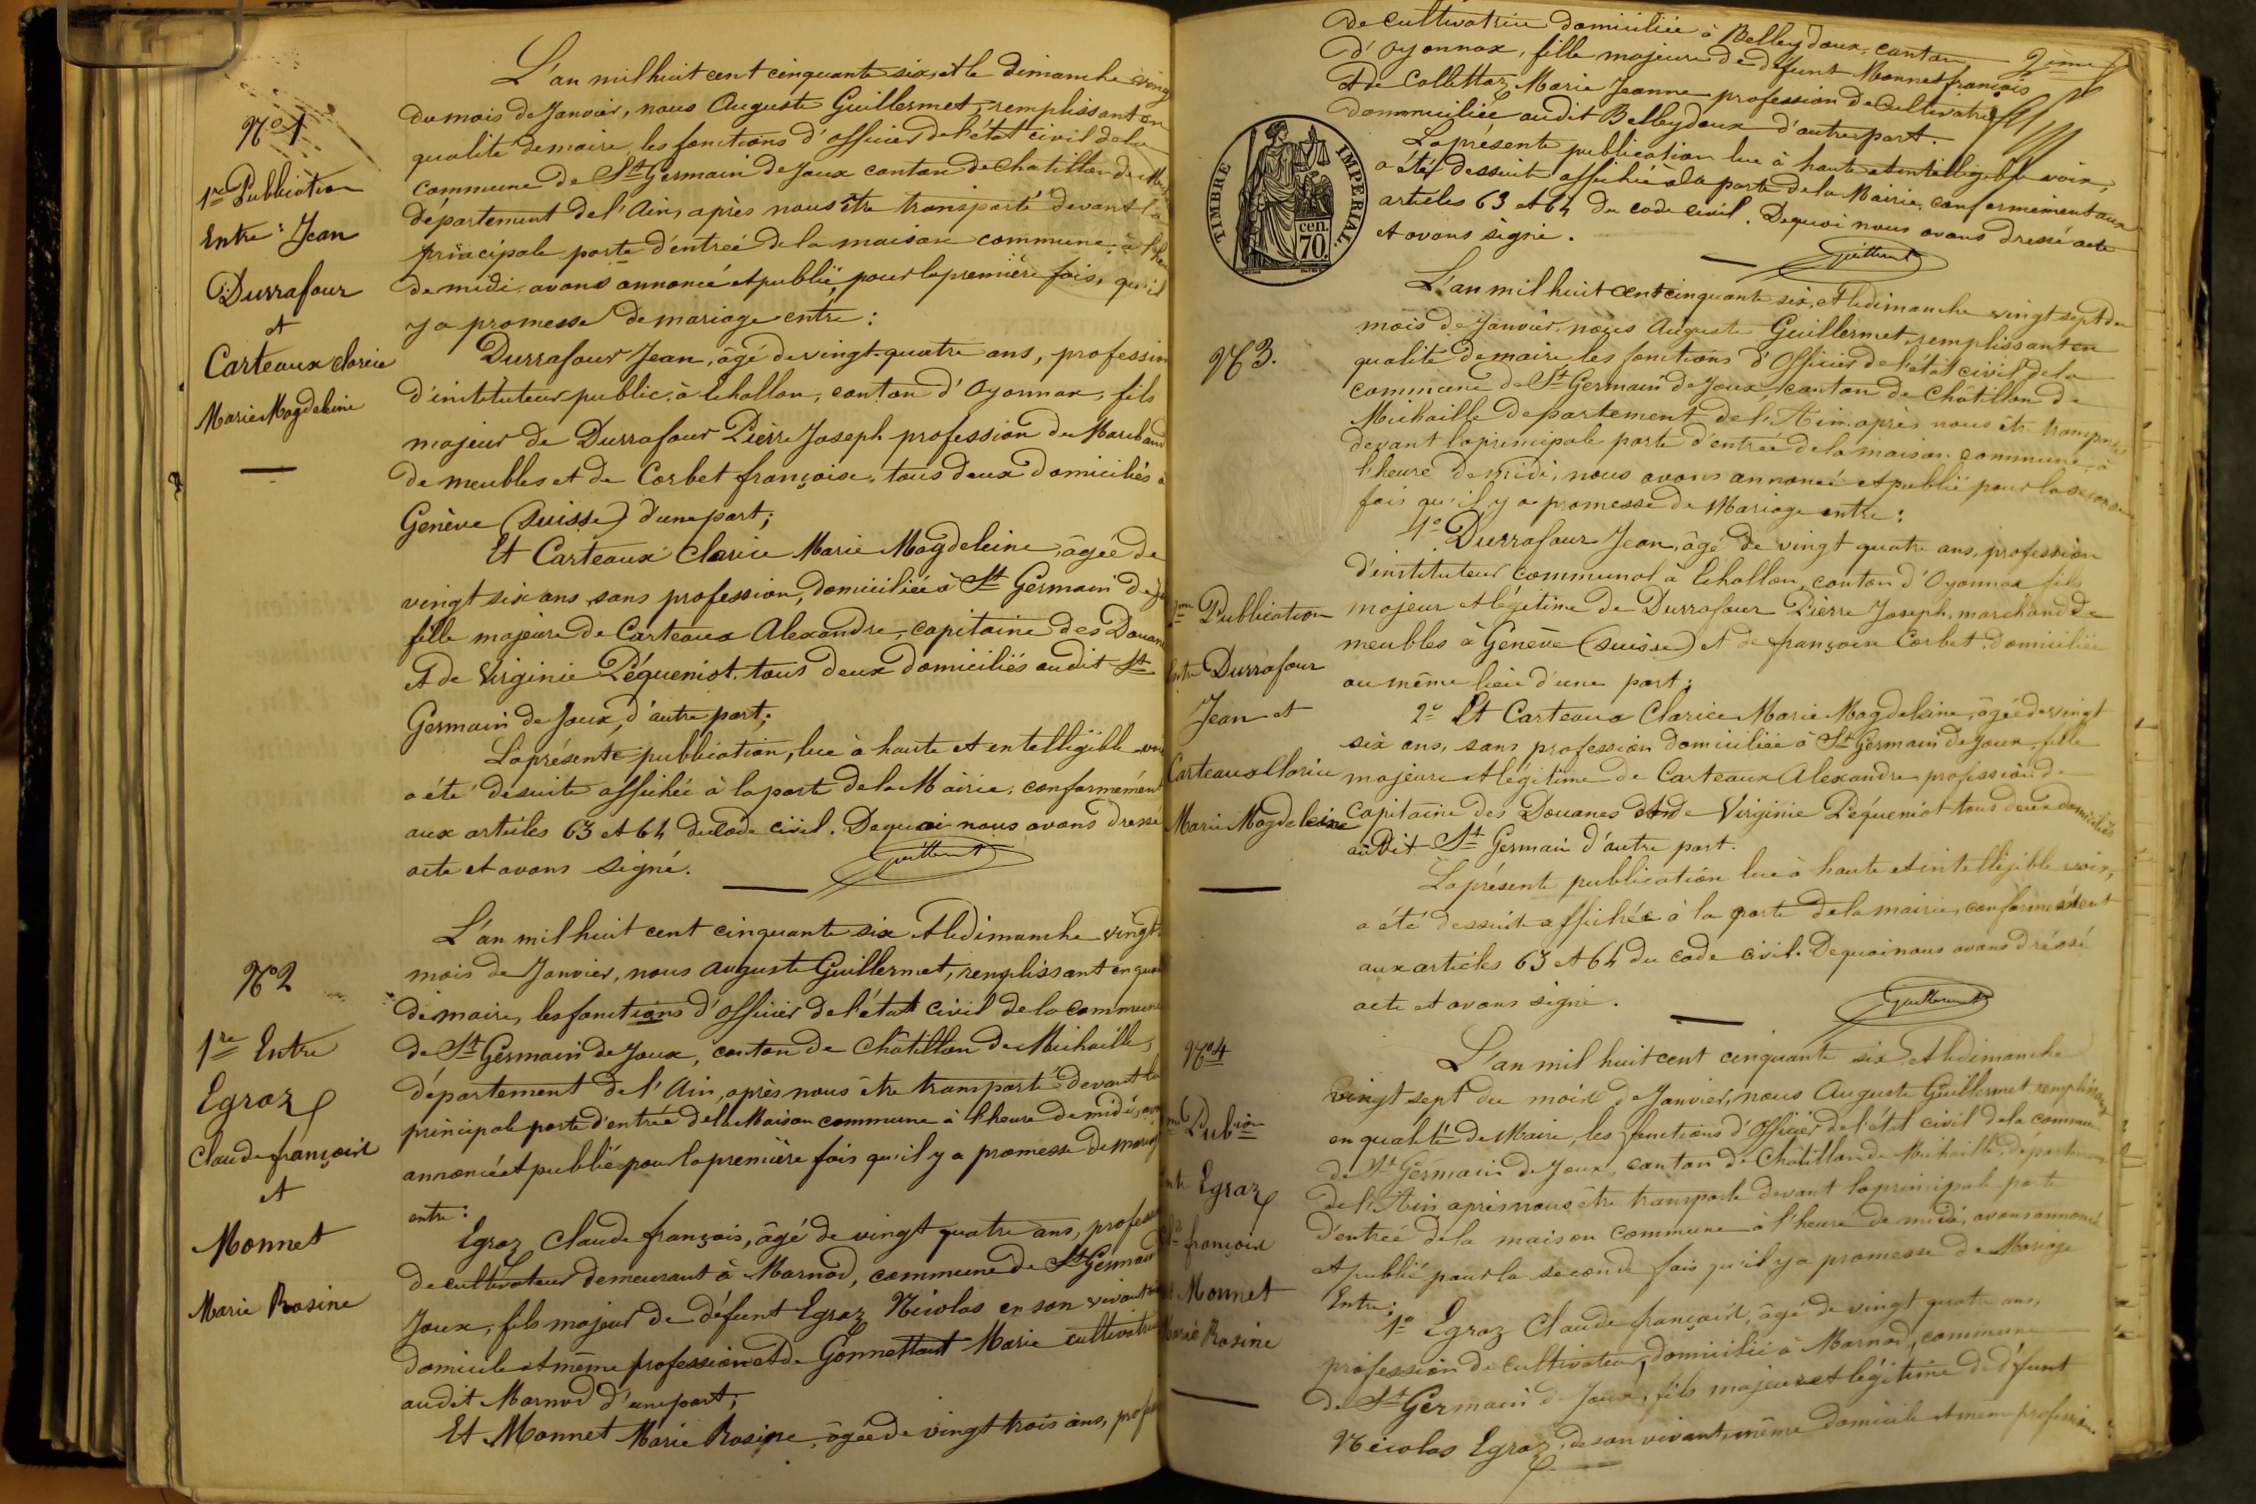 N° 1
1re Publication
Entre : Jean
Durrafour
et
Carteaux Clarice
Marie Magdeleine
L'an mil huit cent cinquante six, et le dimanche vingt
du mois de Janvier, nous Auguste Guillermet, remplissant en
qualité de maire, les fonctions d'officier de l'état civil de la
commune de St Germain de Joux canton de Chatillon de
département de l'Ain, après nous être transporté devant la
principale porte d'entrée de la maison commune, à l'he
de midi, avons annoncé et publié, pour la première fois, qu'il
y a promesse de mariage entre :
Durrafour Jean, âgé de vingt-quatre ans, profession
d'instituteur public, à Echallon, canton d'Oyonnax, fils
majeur de Durrafour Pierre Joseph profession de Marchand
de meubles et de Corbet françoise, tous deux domiciliés à
Genève (Suisse) d'une part;
Et Carteaux Clarice Marie Magdeleine, âgée de
vingt six ans, sans profession, domiciliée à St Germain de
fille majeure de Carteaux Alexandre, capitaine des Douane
et de Virginie Péqueniot, tous deux domiciliés audit St
Germain de Joux, d'autre part;
La présente publication, lue à haute et entelligible
a été desuite affichée à la porte de la Mairie, conformément
aux articles 63 et 64 du Code civil. De quoi nous avons dressé
acte et avons signé.
Guillermet
N° 2
1re Entre
Egraz
Claude françois
et
Monnet
Marie Rosine
L'an mil huit cent cinquante six et le dimanche vingt
mois de Janvier, nous Auguste Guillermet, remplissant en qua
de maire, les fonctions d'officier de l'état civil de la commune
de St Germain de Joux, canton de Châtillon de Michaille,
département de l'Ain, après nous être transporté devant la
principale porte d'entrée de la Maison commune à l'heure de midi,
annoncé et publié pour la première fois qu'il y a promesse de mariage
entre :
Egraz Claude françois, âgé de vingt quatre ans, profess
de cultivateur demeurant à Marnod, commune de St Germain
Joux, fils majeur de défunt Egraz Nicolas en son vivant
domicile et même profession et de Gonnettant Marie cultivatrice
audit Marnod d'une part;
Et Monnet Marie Rosine, âgée de vingt trois ans, prof
de cultivatrice domiciliée à Belleydoux, canton
d'Oyonnax, fille majeure de défunt Monnet françois
et de Collettaz Marie Jeanne profession de Cultivatrice
dommiciliée audit Belleydoux d'autre part.
2ème
La présente publication lue à haute et intelligible voix,
a été dessuite affichée à la porte de la Mairie, conformément aux
articles 63 et 64 du code civil. De quoi nous avons dressé acte
et avons signé.
Guillermet
TIMBRE IMPERIAL.
cen.
70.
N° 3.
Publication
Entre Durrafour
Jean et
Carteaux Clarice
Marie Magdeleine
L'an mil huit cent cinquante six, et le dimanche vingt sept du
mois de Janvier, nous Auguste Guillermet, remplissant en
qualité de maire, les fonctions d'Officier de l'état civil de la
commune de St Germain de Joux, canton de Châtillon de
Michaille département de l'Ain, après nous être transporté
devant la principale porte d'entrée de la maison commune, à
l'heure de midi, nous avons annoncé et publié pour la seconde
fois qu'il y a promesse de Mariage entre :
1° Durrafour Jean, âgé de vingt quatre ans, profession
d'instituteur communal à Echallon, canton d'Oyonnax fils
majeur et légitime de Durrafour Pierre Joseph, marchand de
meubles à Genève (Suisse) et de françoise Corbet, domiciliée
au même lieu d'une part;
2° Et Carteaux Clarice Marie Magdeleine, âgée de vingt
six ans, sans profession domiciliée à St Germain de Joux, fille
majeure et légitime de Carteaux Alexandre profession de
Capitaine des Douanes et de Virginie Péqueniot tous deux domiciliés
audit St Germain d'autre part.
La présente publication lue à haute et intelligible voix,
a été dessuite affichée à la porte de la mairie, conformément
aux articles 63 et 64 du code civil. De quoi nous avons dressé
acte et avons signé.
Guillermet
N° 4
Pubion
Egraz
françois
Monnet
Marie Rosine
L'an mil huit cent cinquante six et le dimanche
vingt sept du mois de Janvier, nous Auguste Guillermet remplissant
en qualité de Maire, les fonctions d'Officier de l'état civil de la commune
de St Germain de Joux, canton de Châtillon de Michaille, département
de l'Ain après nous être transporté devant la principale porte
d'entrée de la maison commune à l'heure de midi, avons annoncé
et publié pour la seconde fois qu'il y a promesse de Mariage
Entre :
1° Egraz Claude françois, âgé de vingt quatre ans,
profession de cultivateur, domicilié à Marnod, commune
de St Germain de Joux, fils majeur et légitime de défunt
Nicolas Egraz, de son vivant, même domicile et même profession